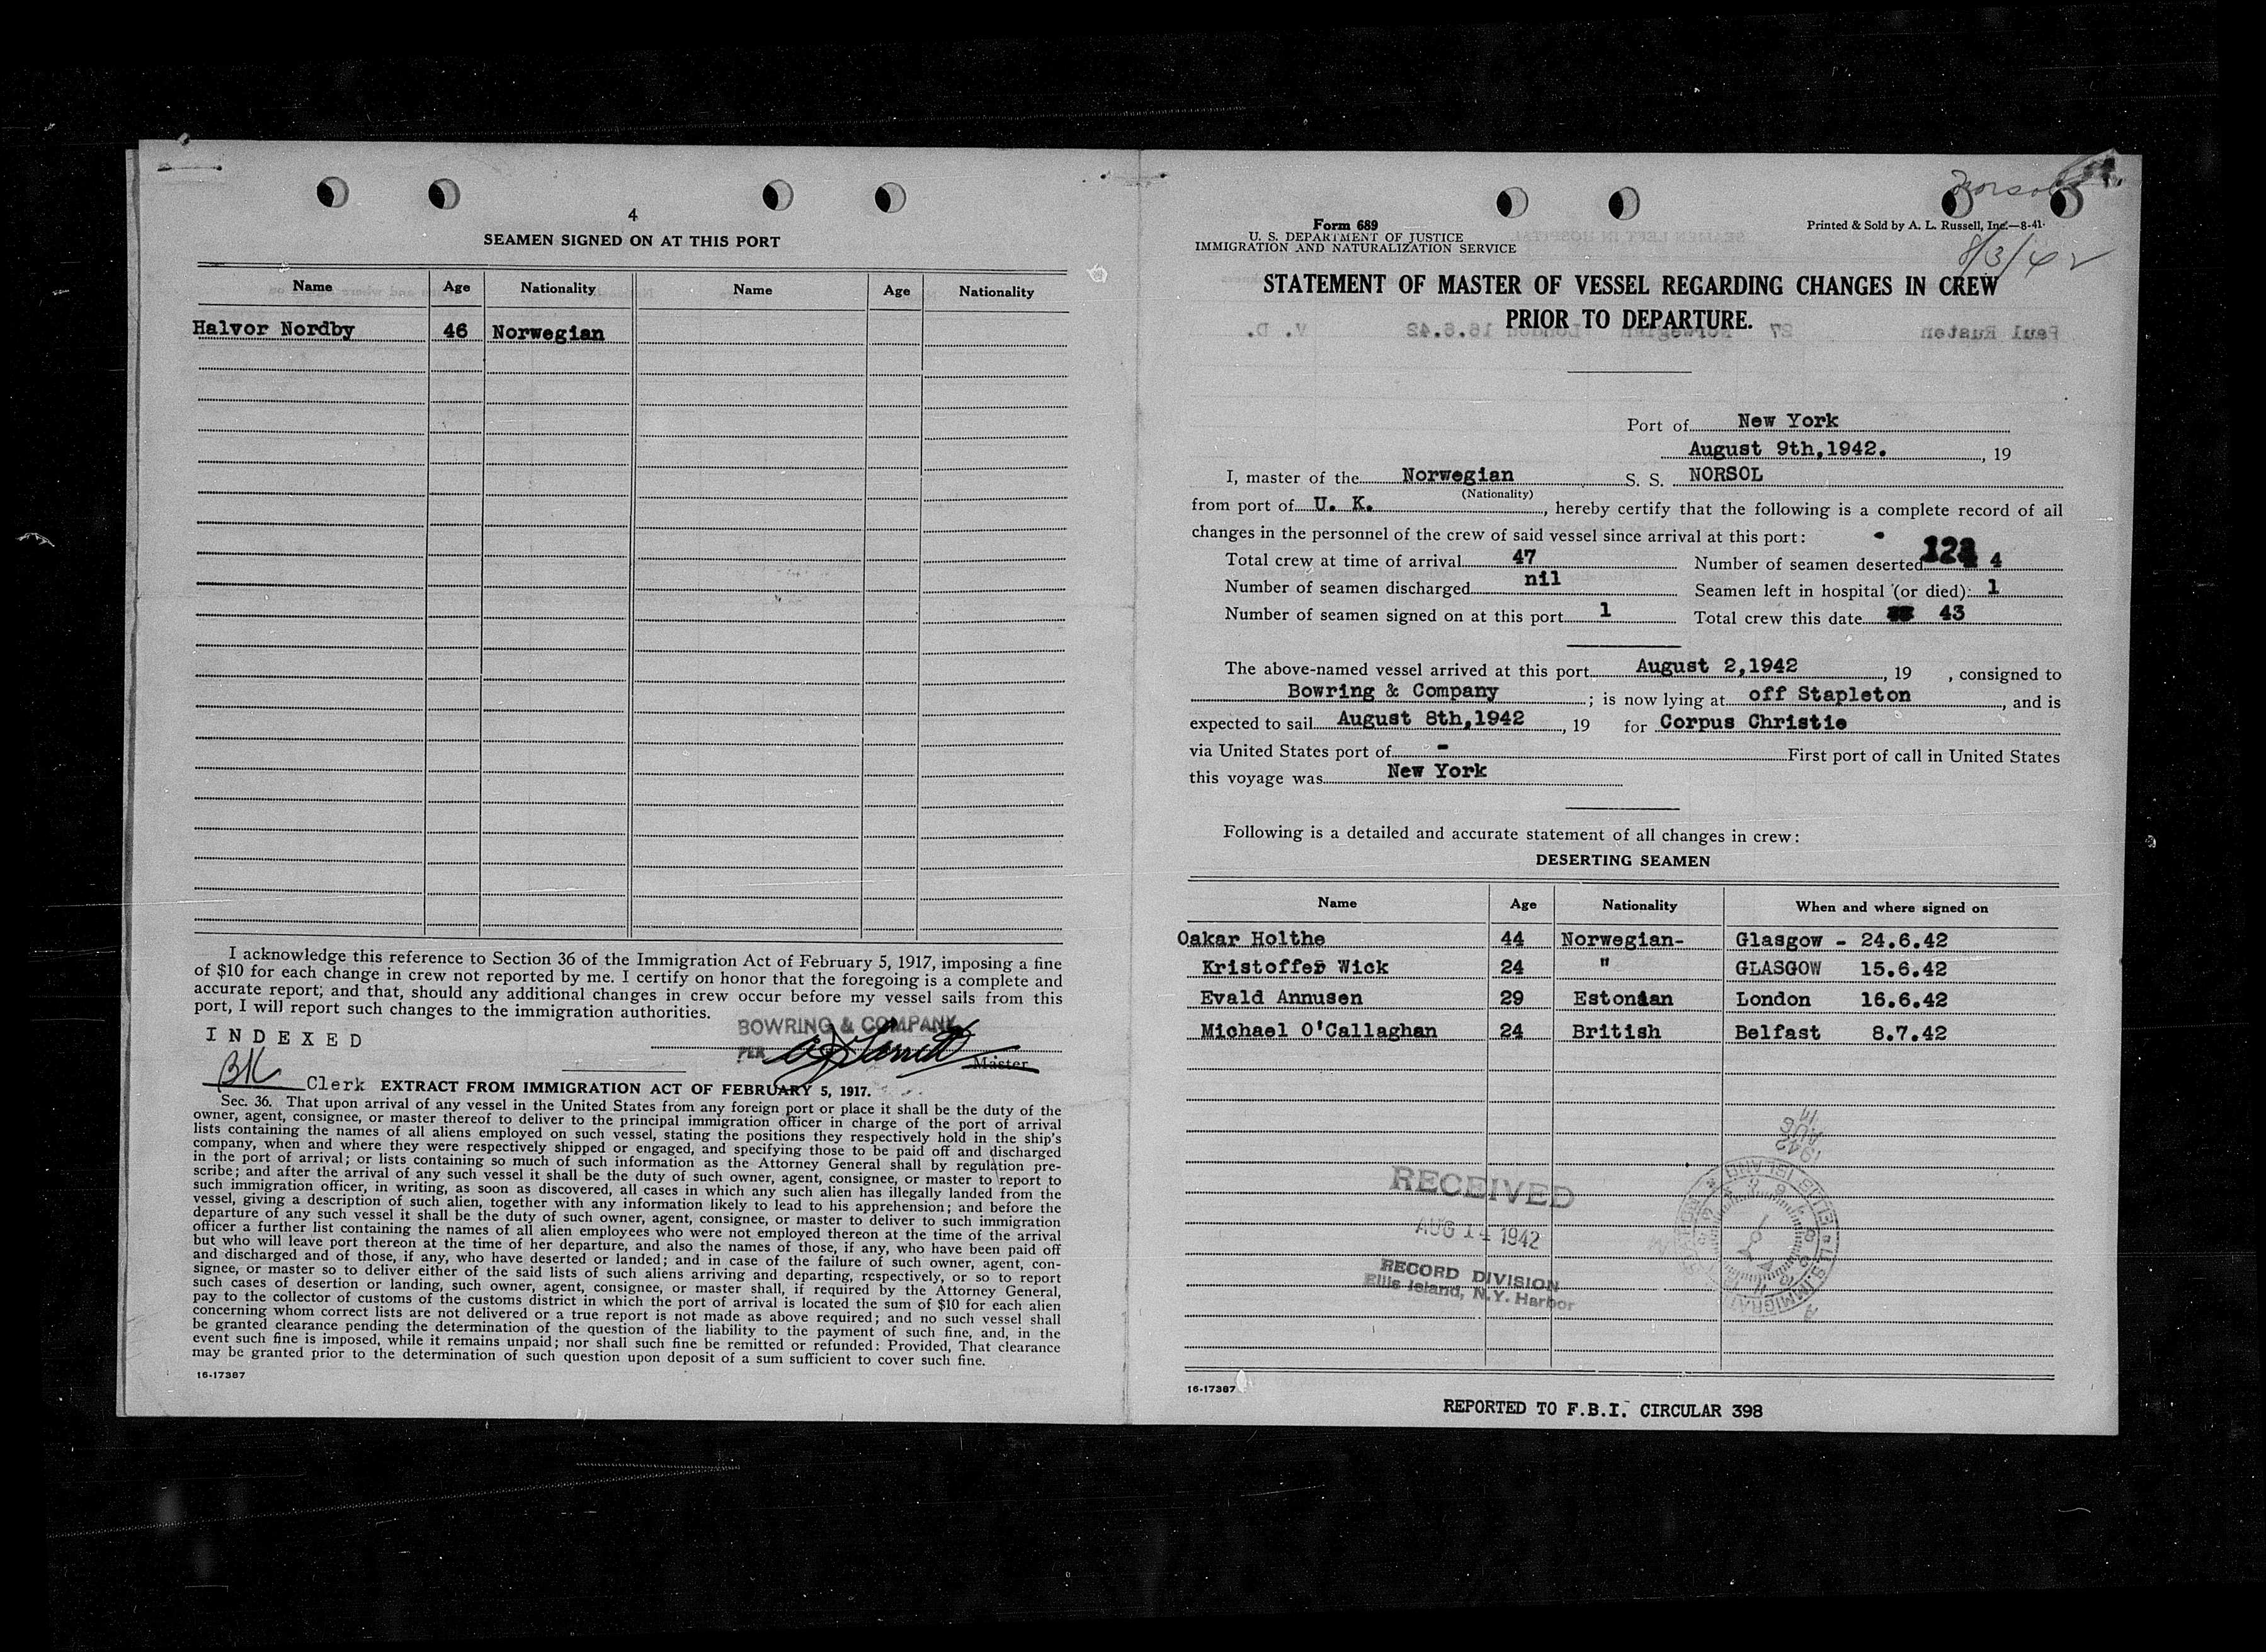 4
SEAMEN SIGNED ON AT THIS PORT
Name Age Nationality Name Age Nationality
Halvor Nordby 46 Norwegian
I acknowledge this reference to Section 36 of the Immigration Act of February 5, 1917, imposing a fine
of $10 for each change in crew not reported by me. I certify on honor that the foregoing is a complete and
accurate report; and that, should any additional changes in crew occur before my vessel sails from this
port, I will report such changes to the immigration authorities.
INDEXED
BOWRING & COMPANY
PER
Master
BK Clerk
EXTRACT FROM IMMIGRATION ACT OF FEBRUARY 5, 1917.
Sec. 36. That upon arrival of any vessel in the United States from any foreign port or place it shall be the duty of the
owner, agent, consignee, or master thereof to deliver to the principal immigration officer in charge of the port of arrival
lists containing the names of all aliens employed on such vessel, stating the positions they respectively hold in the ship's
company, when and where they were respectively shipped or engaged, and specifying those to be paid off and discharged
in the port of arrival; or lists containing so much of such information as the Attorney General shall by regulation pre-
scribe; and after the arrival of any such vessel it shall be the duty of such owner, agent, consignee, or master to report to
such immigration officer, in writing, as soon as discovered, all cases in which any such alien has illegally landed from the
vessel, giving a description of such alien, together with any information likely to lead to his apprehension; and before the
departure of any such vessel it shall be the duty of such owner, agent, consignee, or master to deliver to such immigration
officer a further list containing the names of all alien employees who were not employed thereon at the time of the arrival
but who will leave port thereon at the time of her departure, and also the names of those, if any, who have been paid off
and discharged and of those, if any, who have deserted or landed; and in case of the failure of such owner, agent, con-
signee, or master so to deliver either of the said lists of such aliens arriving and departing, respectively, or so to report
such cases of desertion or landing, such owner, agent, consignee, or master shall, if required by the Attorney General,
pay to the collector of customs of the customs district in which the port of arrival is located the sum of $10 for each alien
concerning whom correct lists are not delivered or a true report is not made as above required; and no such vessel shall
be granted clearance pending the determination of the question of the liability to the payment of such fine, and, in the
event such fine is imposed, while it remains unpaid; nor shall such fine be remitted or refunded: Provided, That clearance
may be granted prior to the determination of such question upon deposit of a sum sufficient to cover such fine.
16-17387
Norsol
Form 689
U. S. DEPARTMENT OF JUSTICE
IMMIGRATION AND NATURALIZATION SERVICE
Printed & Sold by A. L. Russell, Inc.—8-41
8/3/42
STATEMENT OF MASTER OF VESSEL REGARDING CHANGES IN CREW
PRIOR TO DEPARTURE.
Port of New York
August 9th,1942. , 19
I, master of the Norwegian S. S. NORSOL
(Nationality)
from port of U. K. , hereby certify that the following is a complete record of all
changes in the personnel of the crew of said vessel since arrival at this port:
Total crew at time of arrival 47 Number of seamen deserted 4
Number of seamen discharged nil Seamen left in hospital (or died): 1
Number of seamen signed on at this port 1 Total crew this date 43
The above-named vessel arrived at this port August 2,1942 , 19 , consigned to
Bowring & Company ; is now lying at off Stapleton , and is
expected to sail August 8th,1942 , 19 for Corpus Christie
via United States port of - First port of call in United States
this voyage was New York
Following is a detailed and accurate statement of all changes in crew:
DESERTING SEAMEN
Name Age Nationality When and where signed on
Oakar Holthe 44 Norwegian- Glasgow - 24.6.42
Kristoffer Wick 24 " GLASGOW 15.6.42
Evald Annusen 29 Estonian London 16.6.42
Michael O'Callaghan 24 British Belfast 8.7.42
RECEIVED
AUG 14 1942
RECORD DIVISION
Ellis Island, N.Y. Harbor
16-17387
REPORTED TO F.B.I. CIRCULAR 398